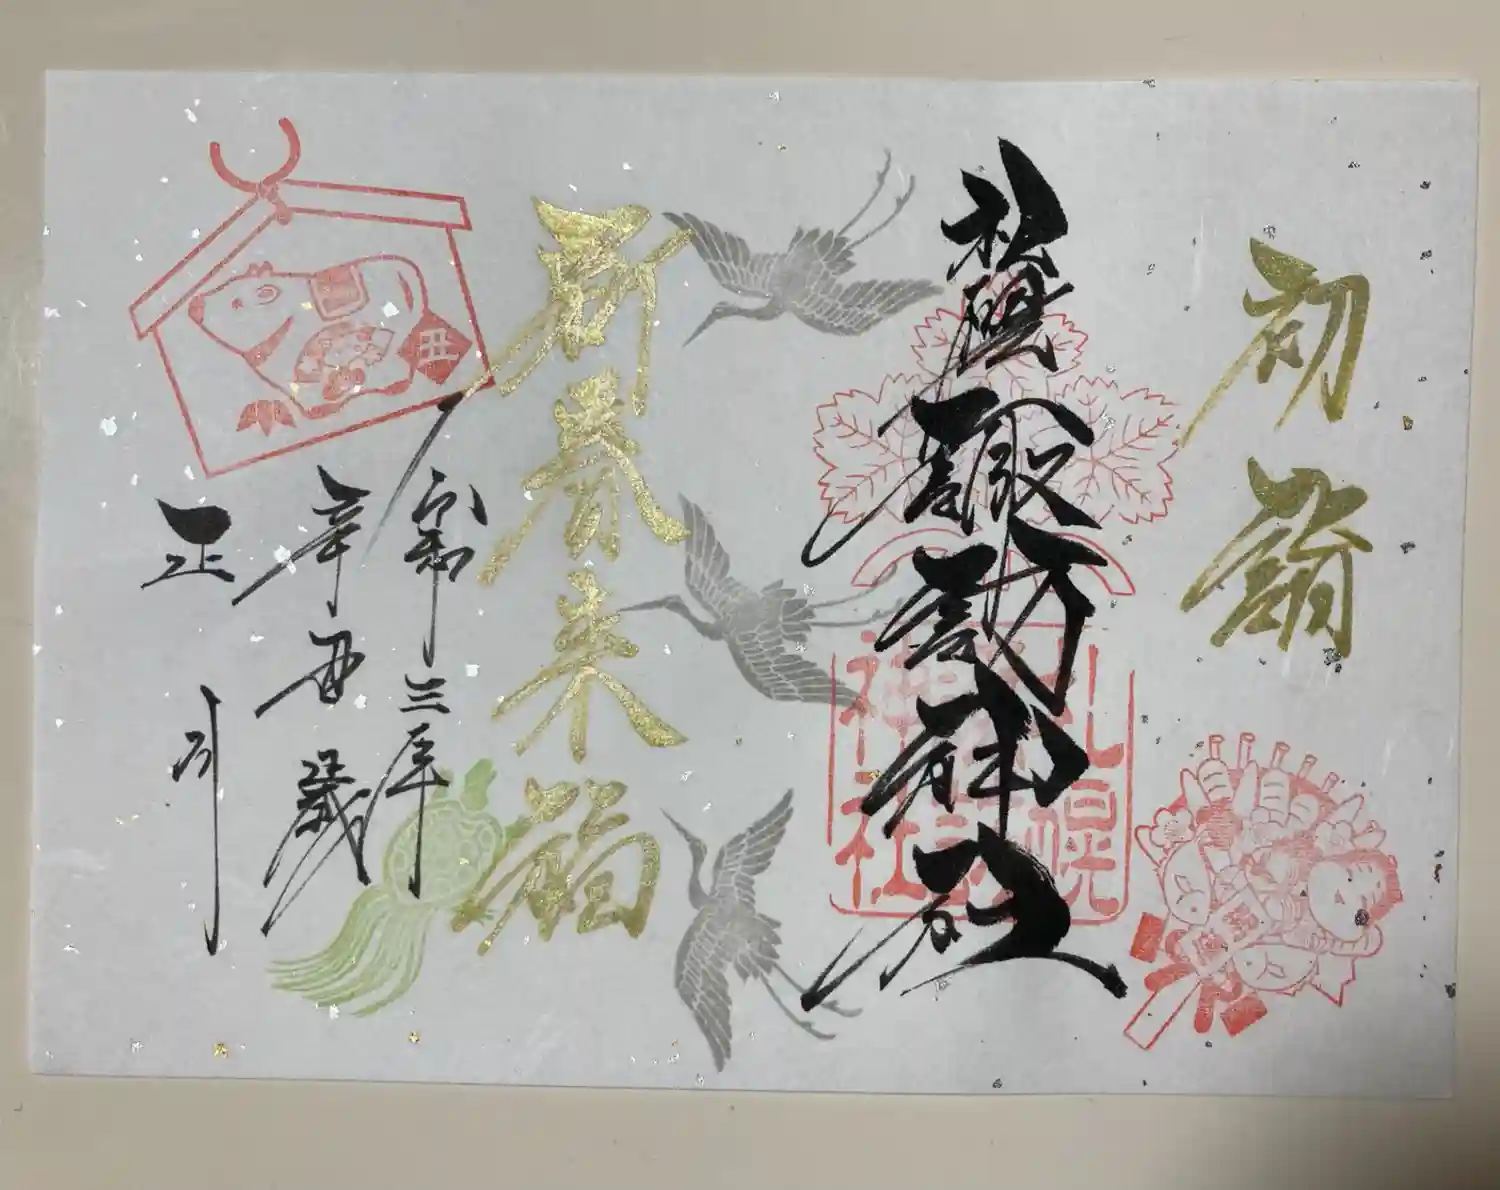 初詣
札幌諏訪神社
札幌
諏訪
神社
新春来福
令和三年
辛丑歳
正月
丑